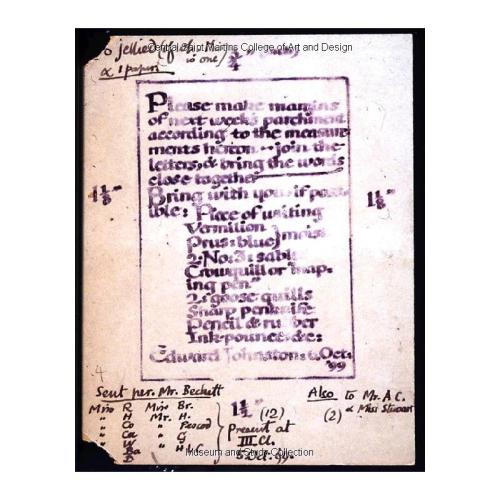 to jellied
Central Saint Martins College of Art and Design
& 1 paper is one 3/4"
Please make margins
of next week's parchment
according to the measure-
ments hereon — join the
letters, & bring the words
close together
1 1/8" 1 1/8"
Bring with you, if poss-
ible: Piece of writing
Vermilion
Prus: blue } moist
2: No: 3: sable
Crowquill or "map-
ing pen"
2: goose quills
Sharp penknife
Pencil & rubber
Ink: pounce: &c:
Edward Johnston: 6 Oct:
'99
4
Sent per. Mr. Beckett
Also to Mr A C.
& Miss Stewart
(2)
1 1/2" (12)
Miss R Miss Br.
" H Mr. H.
" Co " Pascod
" Ca " G
" W " H V C
" Ba
" B
Present at
III. Cl.
5. Oct. 99.
Museum and Study Collection